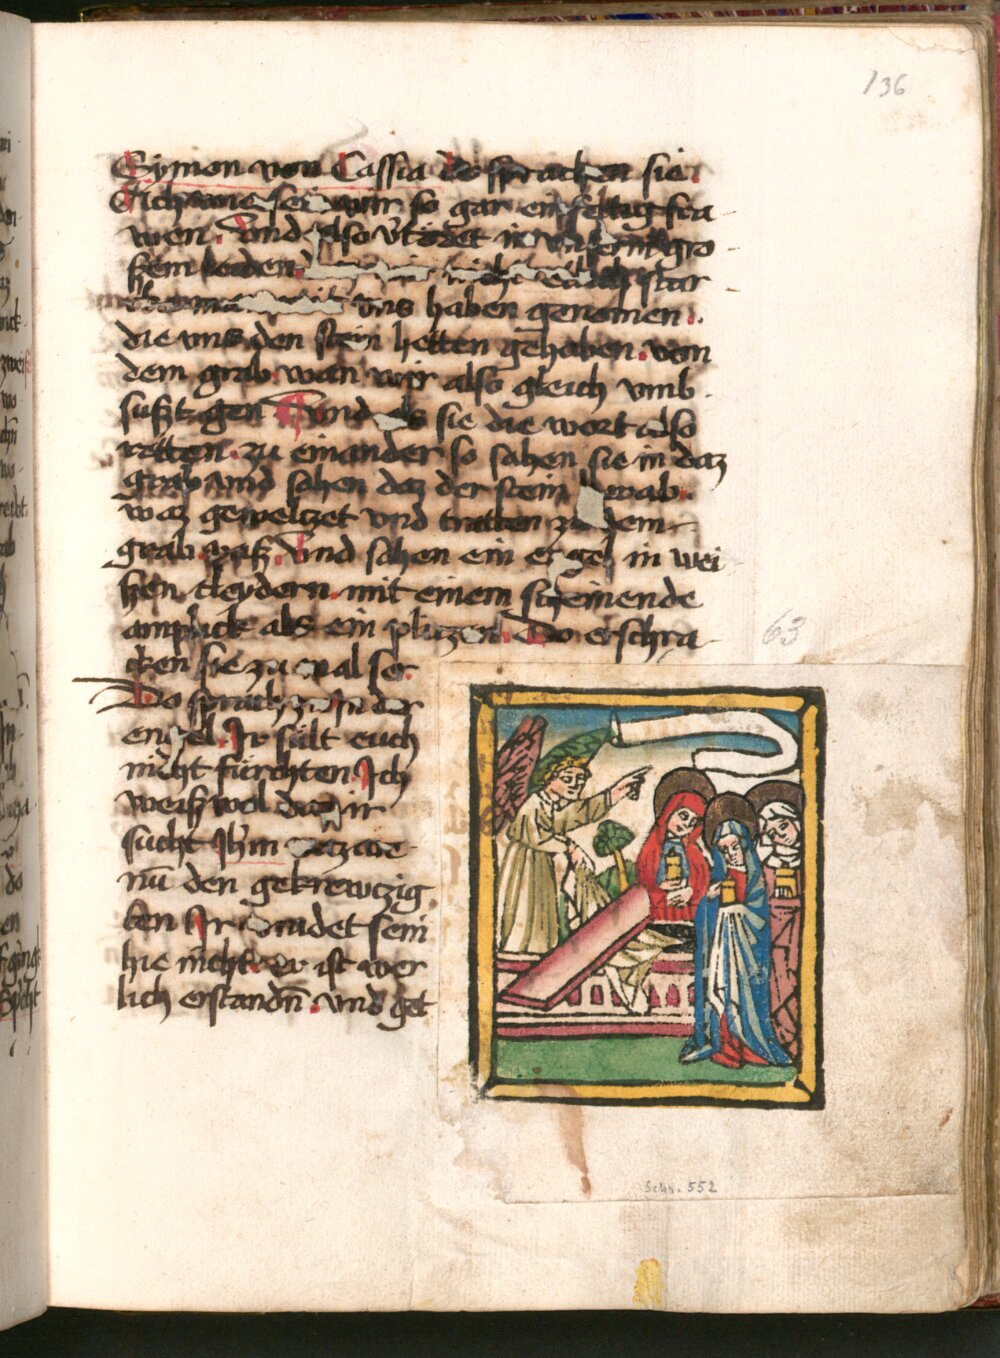 136
Symon von Cassia do sprachen sie
wie sei wir so gar einfeltig fra
wen. Vnd also in vnserm gro
ssem
vns haben genomen.
die vns den stein hetten gehaben von
dem grab wan wir also gleich vmb
sust gen Vnd als sie die wort also
retten zu einander so sahen sie in daz
grab vnd sahen daz der stein herab
waz geweltzet vnd tratten zu dem
grab paß. Vnd sahen ein engel in wei
ßen cleydern mit einem scheinende
amplick als ein pliczen. Do erschra
cken sie zu mal ser.
63
Do sprach zu In der
engel. Ir sült euch
nicht fürchten. Ich
weiß wol daz ir
sucht Jhm
nū den gekrewczig
ten Ir vindet sein
hie nicht. er ist wer
lich erstandn̄. vnd get
Schr. 552